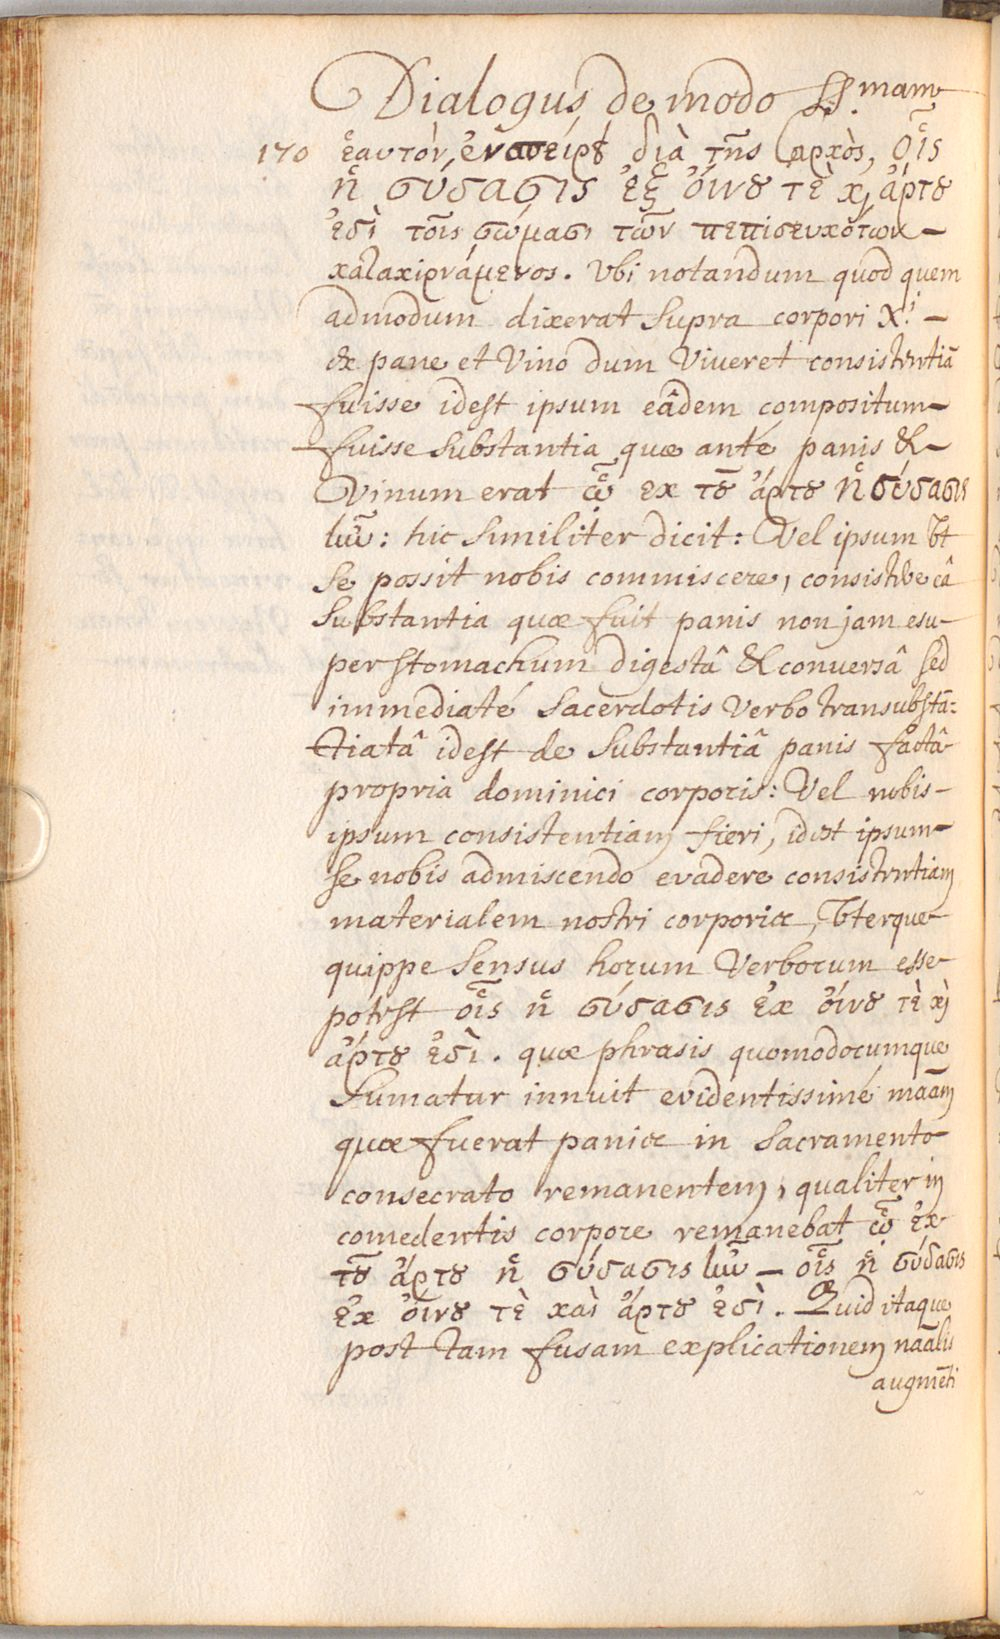 Dialogus de modo SS.mam
170 ἑαυτὸν ἐνσπείρȣ διὰ τῆς σαρκὸς, οἷς
ἡ σύστασις ἐξ οἴνȣ τὲ κ̀ ἄρτȣ
ἐστὶ τοῖς σώμασι τῶν πεπιστευκότων
καλακιρνάμενος. Vbi notandum quod quem
admodum dixerat supra corpori Xi.
ex pane et Vino dum Viueret consistentiã
fuisse idest ipsum eâdem compositum
fuisse substantia quæ ante panis &
Vinum erat ᾧ ἐκ τȣ͂ ἄρτȣ ἡ σύστασις
ἰῶ: hic similiter dicit: Vel ipsum Vt
se possit nobis commiscere, consistere eâ
substantia quæ fuit panis non jam esu
per stomachum digestâ & conversâ sed
immediaté Sacerdotis Verbo transubstã:
tiatâ idest de substantiâ panis factâ
propria dominici corporis: Vel nobis
ipsum consistentiam fieri, idest ipsum
se nobis admiscendo evadere consistentiam
materialem nostri corporis, Vterque
quippe sensus horum Verborum esse
potest οἷς ἡ σύστασις ἐκ οἴνȣ τὲ κ̀
ἄρτȣ ἐστὶ. quæ phrasis quomodocumque
sumatur innuit evidentissimé maãm
quæ fuerat panis in Sacramento
consecrato remanentem, qualiter in
comedentis corpore remanebat ᾧ ἐκ
τȣ͂ ἄρτȣ ἡ σύστασις ἰῶ — οἷς ἡ σύστασις
ἐκ οἴνȣ τὲ καὶ ἄρτȣ ἐστὶ. Quid itaque
post tam fusam explicationem naãlis
augmẽti